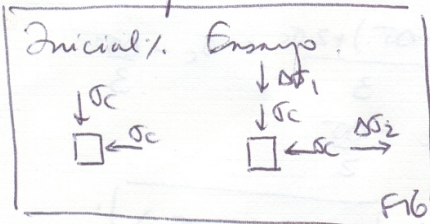 Inicial/. Ensayo.
↓Δσ₁
↓σc ↓σc
□←σc □←σc→ Δσ₂
F16